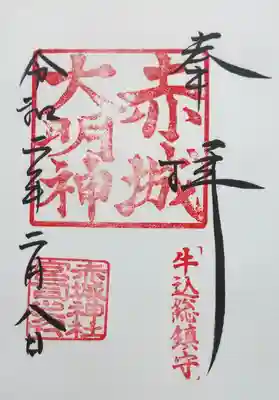 奉拝
赤城
大明神
「牛込総鎮守」
令和二年二月八日
赤城神社